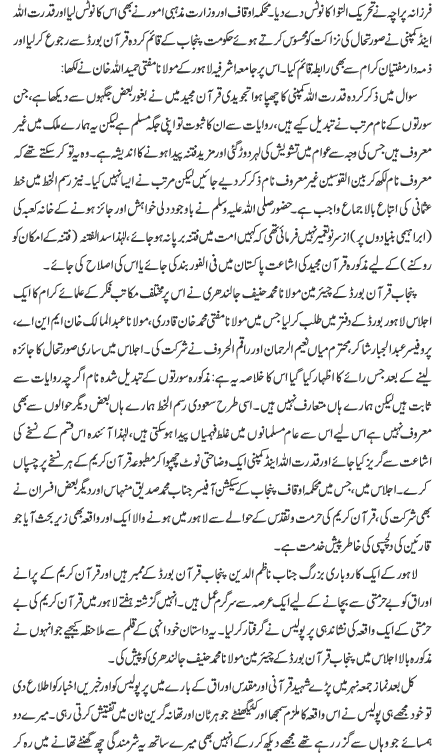 فرزانہ پراچہ نے تحریک التوا کا نوٹس دے دیا۔ محکمہ اوقاف اور وزارت مذہبی امور نے بھی اس کا نوٹس لیا اور قدرت اللہ
اینڈ کمپنی نے صورتحال کی نزاکت کو محسوس کرتے ہوئے حکومت پنجاب کے قائم کردہ قرآن بورڈ سے رجوع کر لیا اور
ذمہ دار مفتیان کرام سے بھی رابطہ قائم کیا۔ اس پر جامعہ اشرفیہ لاہور کے مولانا مفتی حمید اللہ خان نے لکھا:
سوال میں ذکر کردہ قدرت اللہ کمپنی کا چھپا ہوا تجویدی قرآن مجید میں نے بغور بعض جگہوں سے دیکھا ہے، جن
سورتوں کے نام مرتب نے تبدیل کیے ہیں، روایات سے ان کا ثبوت تو اپنی جگہ مسلم ہے لیکن یہ ہمارے ملک میں غیر
معروف ہیں جس کی وجہ سے عوام میں تشویش کی لہر دوڑ گئی اور مزید فتنہ پیدا ہونے کا اندیشہ ہے۔ وہ یہ تو کر سکتے تھے کہ
معروف نام لکھ کر بین القوسین غیر معروف نام ذکر کر دیے جائیں لیکن مرتب نے ایسا نہیں کیا۔ نیز رسم الخط میں خط
عثمانی کی اتباع بالاجماع واجب ہے۔ حضور صلی اللہ علیہ وسلم نے باوجود دلی خواہش اور جائز ہونے کے خانہ کعبہ کی
(ابراہیمی بنیادوں پر) از سر نو تعمیر نہیں فرمائی تھی کہ کہیں امت میں فتنہ برپا نہ ہو جائے، لہٰذا سدا للفتنہ (فتنہ کے امکان کو
روکنے) کے لیے مذکورہ قرآن مجید کی اشاعت پاکستان میں فی الفور بند کی جائے یا اس کی اصلاح کی جائے۔
پنجاب قرآن بورڈ کے چیئرمین مولانا محمد حنیف جالندھری نے اس پر مختلف مکاتب فکر کے علمائے کرام کا ایک
اجلاس لاہور بورڈ کے دفتر میں طلب کر لیا جس میں مولانا مفتی محمد خان قادری، مولانا عبد المالک خان ایم این اے،
پروفیسر عبد الجبار شاکر، محترم میاں نعیم الرحمان اور راقم الحروف نے شرکت کی۔ اجلاس میں ساری صورتحال کا جائزہ
لینے کے بعد جس رائے کا اظہار کیا گیا اس کا خلاصہ یہ ہے: مذکورہ سورتوں کے تبدیل شدہ نام اگرچہ روایات سے
ثابت ہیں لیکن ہمارے ہاں متعارف نہیں ہیں۔ اسی طرح سعودی رسم الخط ہمارے ہاں بعض دیگر حوالوں سے بھی
معروف نہیں ہے اس لیے اس سے عام مسلمانوں میں غلط فہمیاں پیدا ہو سکتی ہیں، لہٰذا آئندہ اس قسم کے نسخے کی
اشاعت سے گریز کیا جائے اور قدرت اللہ اینڈ کمپنی ایک وضاحتی نوٹ چھپوا کر مطبوعہ قرآن کریم کے ہر نسخے پر چسپاں
کرے۔ اجلاس میں، جس میں محکمہ اوقاف پنجاب کے سیکشن آفیسر جناب محمد صدیق منہاس اور دیگر بعض افسران نے
بھی شرکت کی، قرآن کریم کی حرمت و تقدس کے حوالے سے لاہور میں ہونے والا ایک اور واقعہ بھی زیر بحث آیا جو
قارئین کی دلچسپی کی خاطر پیش خدمت ہے۔
لاہور کے ایک کاروباری بزرگ جناب ناظم الدین پنجاب قرآن بورڈ کے ممبر ہیں اور قرآن کریم کے پرانے
اوراق کو بے حرمتی سے بچانے کے لیے ایک عرصہ سے سرگرم عمل ہیں۔ انہیں گزشتہ ہفتے لاہور میں قرآن کریم کی بے
حرمتی کے ایک واقعہ کی نشاندہی پر پولیس نے گرفتار کر لیا۔ یہ داستان خود انہی کے قلم سے ملاحظہ کیجیے جو انہوں نے
مذکورہ بالا اجلاس میں پنجاب قرآن بورڈ کے چیئرمین مولانا محمد حنیف جالندھری کو پیش کی۔
کل بعد نماز جمعہ نہر میں پڑے شہید قرآنی اور مقدس اوراق کے بارے میں پولیس کو اور خبریں اخبار کو اطلاع دی
تو خود مجھے ہی پولیس نے اس واقعہ کا ملزم سمجھا اور کئی گھنٹے جوہر ٹاؤن اور تھانہ گرین ٹاؤن میں تفتیش کرتی رہی۔ میرے دو
ہمسائے جو وہاں سے گزر رہے تھے مجھے دیکھ کر رکے انہیں بھی میرے ساتھ یہ شرمندگی چھ گھنٹے تھانے میں رہ کر